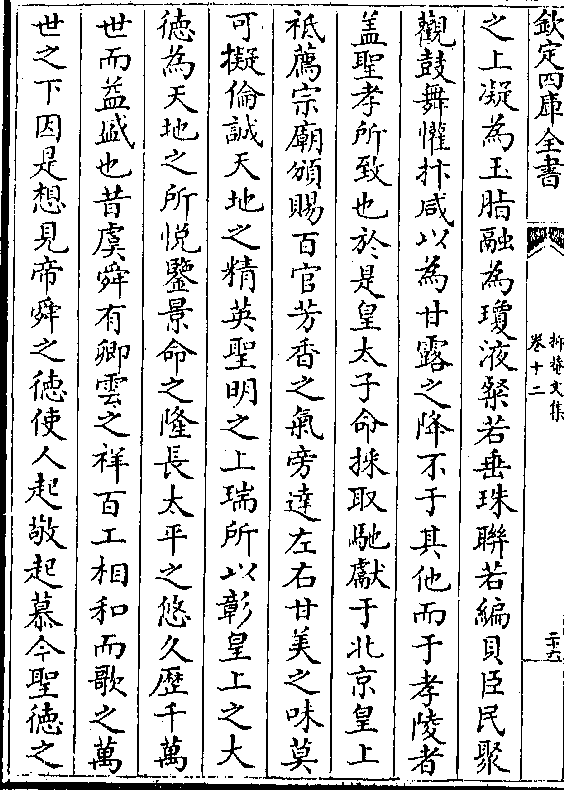 欽定四庫全書
抑菴文集
卷十二
之上凝為玉脂融為瓊液粲若垂珠聯若編貝臣民聚
觀鼓舞懽抃咸以為甘露之降不于其他而于孝陵者
盖聖孝所致也於是皇太子命採取馳獻于北京皇上
祗薦宗廟頒賜百官芳香之氣旁達左右甘美之味莫
可擬倫誠天地之精英聖明之上瑞所以彰皇上之大
徳為天地之所悦鑒景命之隆長太平之悠久歴千萬
世而益盛也昔虞舜有卿雲之祥百工相和而歌之萬
世之下因是想見帝舜之徳使人起敬起慕今聖徳之